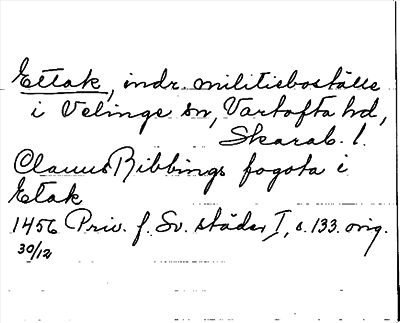 Ettak, indr. militieboställe
i Velinge sn, Vartofta hd,
Skarab. l.
Clawus Ribbings fogota i
Etak
1456 Priv. f. Sv. städer I, s. 133. orig.
30/12